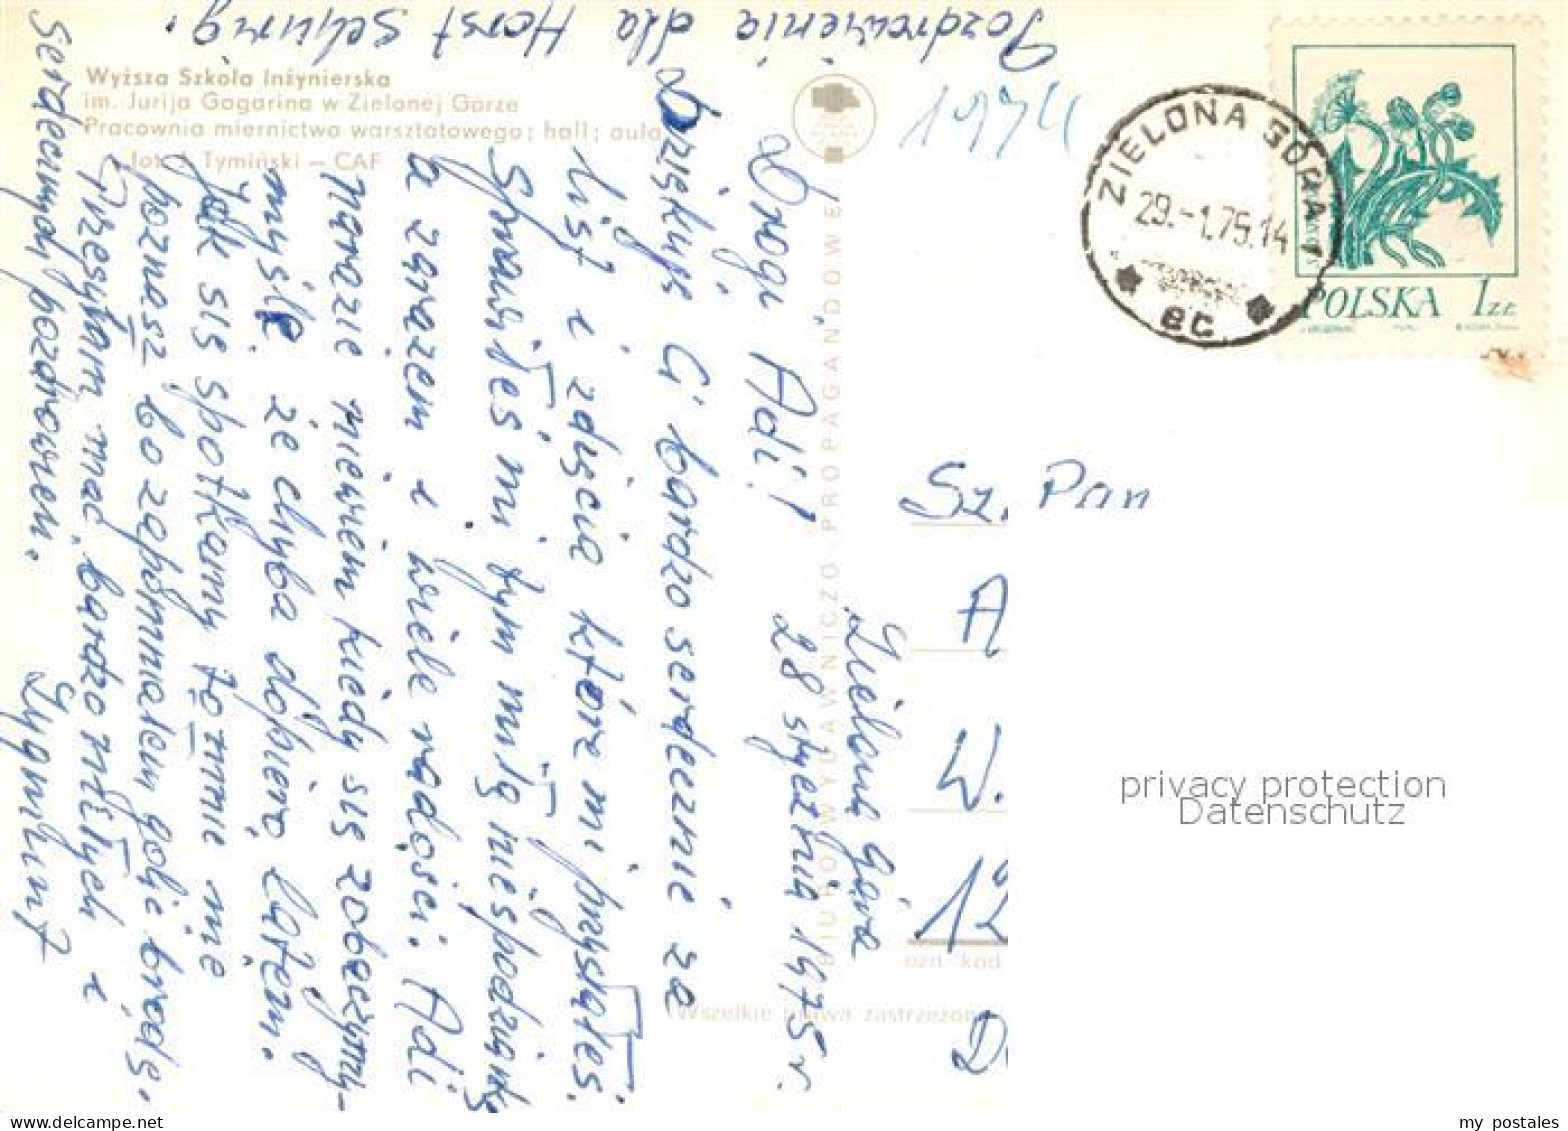 Wyższa Szkoła Inżynierska
im. Jurija Gagarina w Zielonej Górze
Pracownia miernictwa warsztatowego; hall; aula
fot. J. Tymiński — CAF
BIURO WYDAWNICZO PROPAGANDOWE
Wszelkie prawa zastrzeżone
1974
ZIELONA GÓRA 1
29.-1.75.14
BC
POLSKA 1 ZŁ
Zielona Góra
28 stycznia 1975 r.
Drogi "Adi!
Dziękuję Ci bardzo serdecznie za
list i zdjęcia które mi przysłałeś.
Sprawiłeś mi tym miłą niespodziankę
a zarazem i wiele radości. Adi
narazie niewiem kiedy się zobaczymy-
myślę że chyba dopiero latem.
Jak się spotkamy to mnie nie
poznasz bo zapomniałem golić brodę.
Przesyłam moc bardzo miłych i
serdecznych pozdrowień.
Zygmunt
Pozdrowienia dla Horst
Sz. Pan
A
W.
12
ozn. kod
D.
privacy protection
Datenschutz
my postales